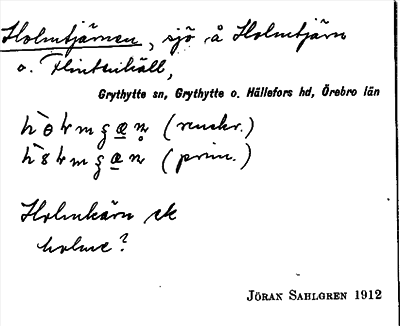 Holmtjärnen, sjö å Holmtjärn
o. Flintenhäll,
Grythytte sn, Grythytte o. Hällefors hd, Örebro län
(renskr.)
(prim.)
Holmkärn sk
holme?
JÖRAN SAHLGREN 1912